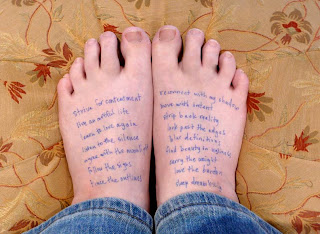 strive for contentment
live an artful life
learn to love again
listen to the silence
argue with the moonlight
follow the signs
trace the outlines
reconnect with my shadow
move with intent
strip back reality
look past the edges
blur definitions
find beauty in ugliness
carry the weight
love the burden
sleep dreamlessly